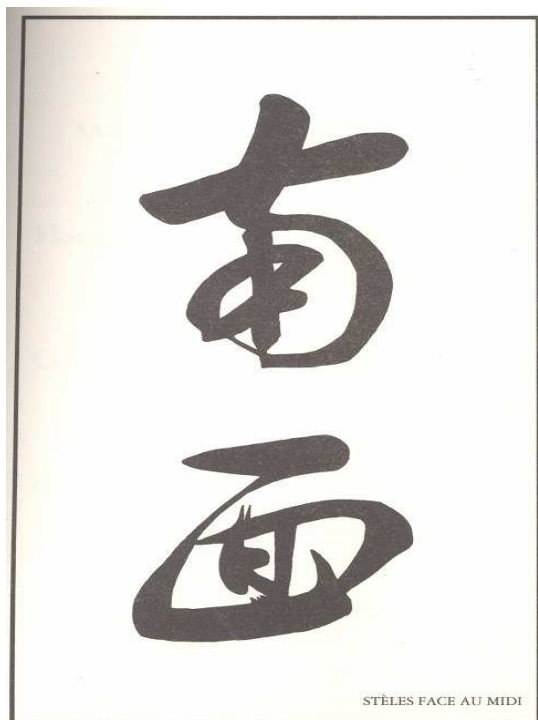 南
面
STÈLES FACE AU MIDI